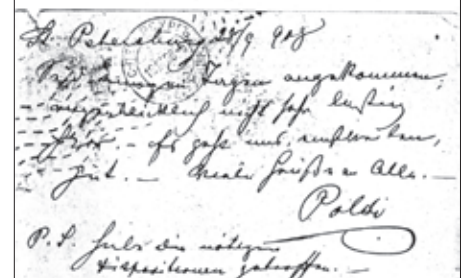 St. Petersburg 28/9 908
Seit einigen Tagen angekommen,
augenblicklich nicht sehr lustig
hier. – Es geht uns, einstweilen,
gut. — Viele Grüße an Alle. —
Poldi
P. S. habe die nötigen
Dispositionen getroffen. —